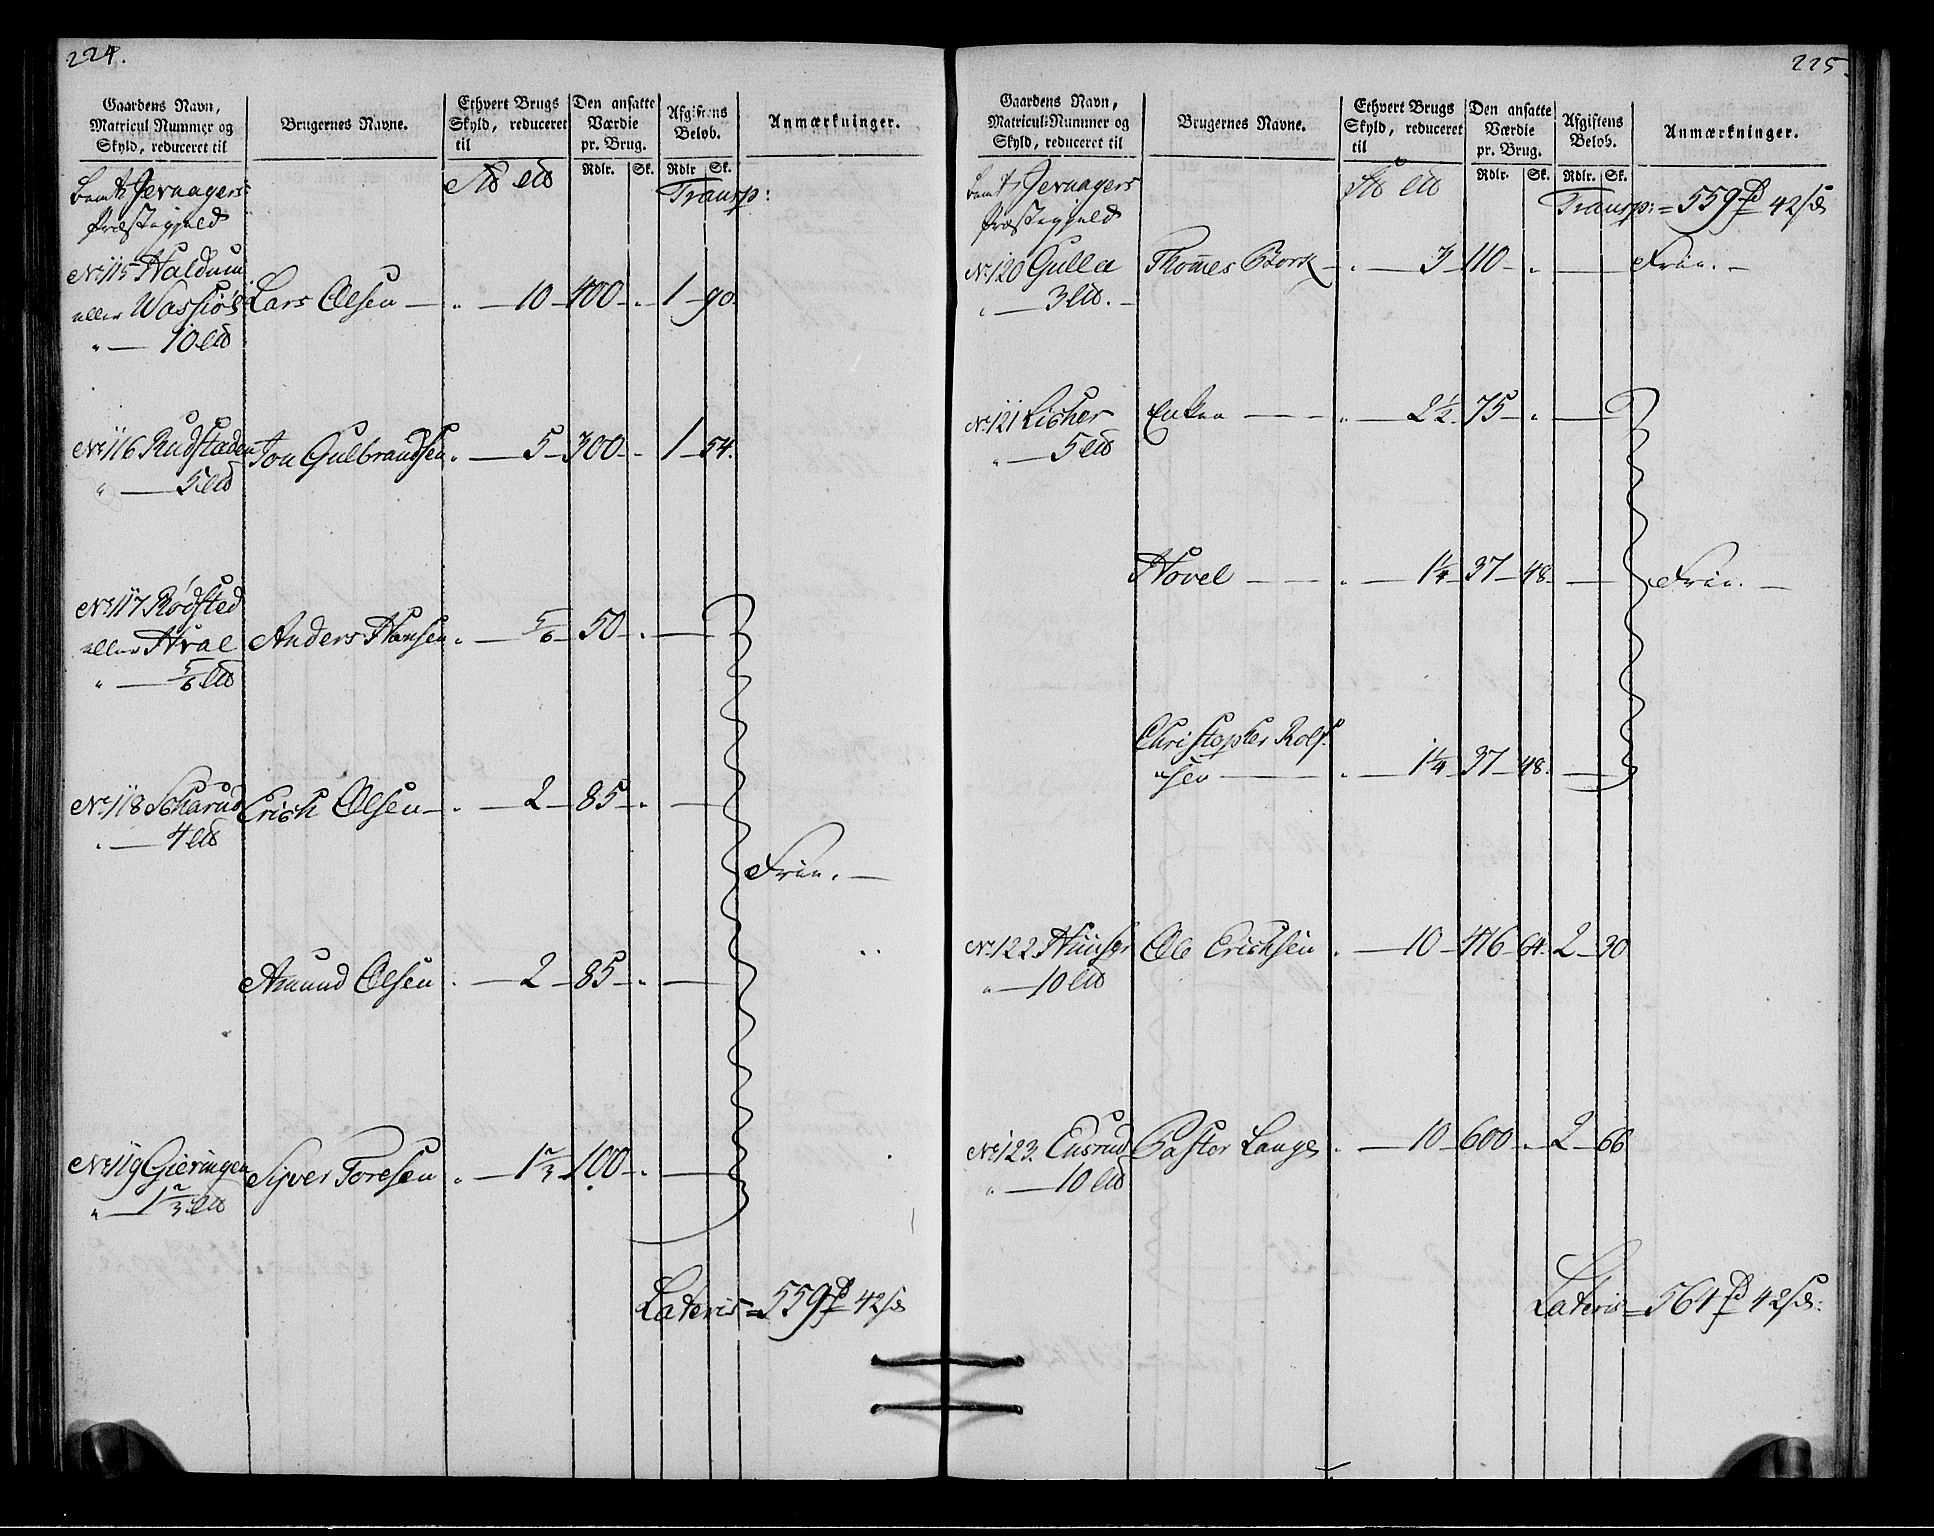 224.
Gaardens Navn,
Matricul Nummer og
Skyld, reduceret til
Brugernes Navne.
Ethvert Brugs
Skyld, reduceret
til
Den ansatte
Værdie
pr. Brug.
Afgiftens
Beløb.
Anmærkninger.
Rdlr. Sk. Rdlr Sk.
Jevnagers Transp:
Præstegjeld
No 115 Haldum
eller Lars Olsen — " — 10 — 400 — " — 1 — 90.
" — 10
No 116 Rudstaden Jon Gulbrandsen " — 5 — 300 — " — 1 — 54.
" — 5
No 117 Rødsted
eller Hval Anders Hansen " — 5/6 — 50 — " —
" — 5/6
No 118 Scharud Erich Olsen — " — 2 — 85 — " —
" — 4
Frie. —
Amund Olsen " — 2 — 85 — " —
No 119 Gieringen Syver Toresen " — 1 2/3 — 100 — " —
" — 1 2/3
Lateris = 559 42
225.
Gaardens Navn,
Matricul-Nummer og
Skyld, reduceret til
Brugernes Navne.
Ethvert Brugs
Skyld, reduceret
til
Den ansatte
Værdie
pr. Brug.
Afgiftens
Beløb.
Anmærkninger.
Rdlr. Sk. Rdlr. Sk.
Jevnagers Transp: = 559 42
Præstegjeld
No 120 Gulla Thomes Bork — " — 3 — 110 — " — Frie. —
" — 3
No 121 Licher Enken — — " — 2 1/2 — 75 — " —
" — 5
Hovel — — " — 1 1/4 — 37 — 48 — Frie. —
Christopher Rolf-
sen — " — 1 1/4 — 37 — 48. —
No 122 Ole Erichsen " — 10 — 416 — 64. — 2 — 30
" — 10
No 123. Pastor Lange " — 10 — 600 — " — 2 — 66
" — 10
Lateris = 564 42